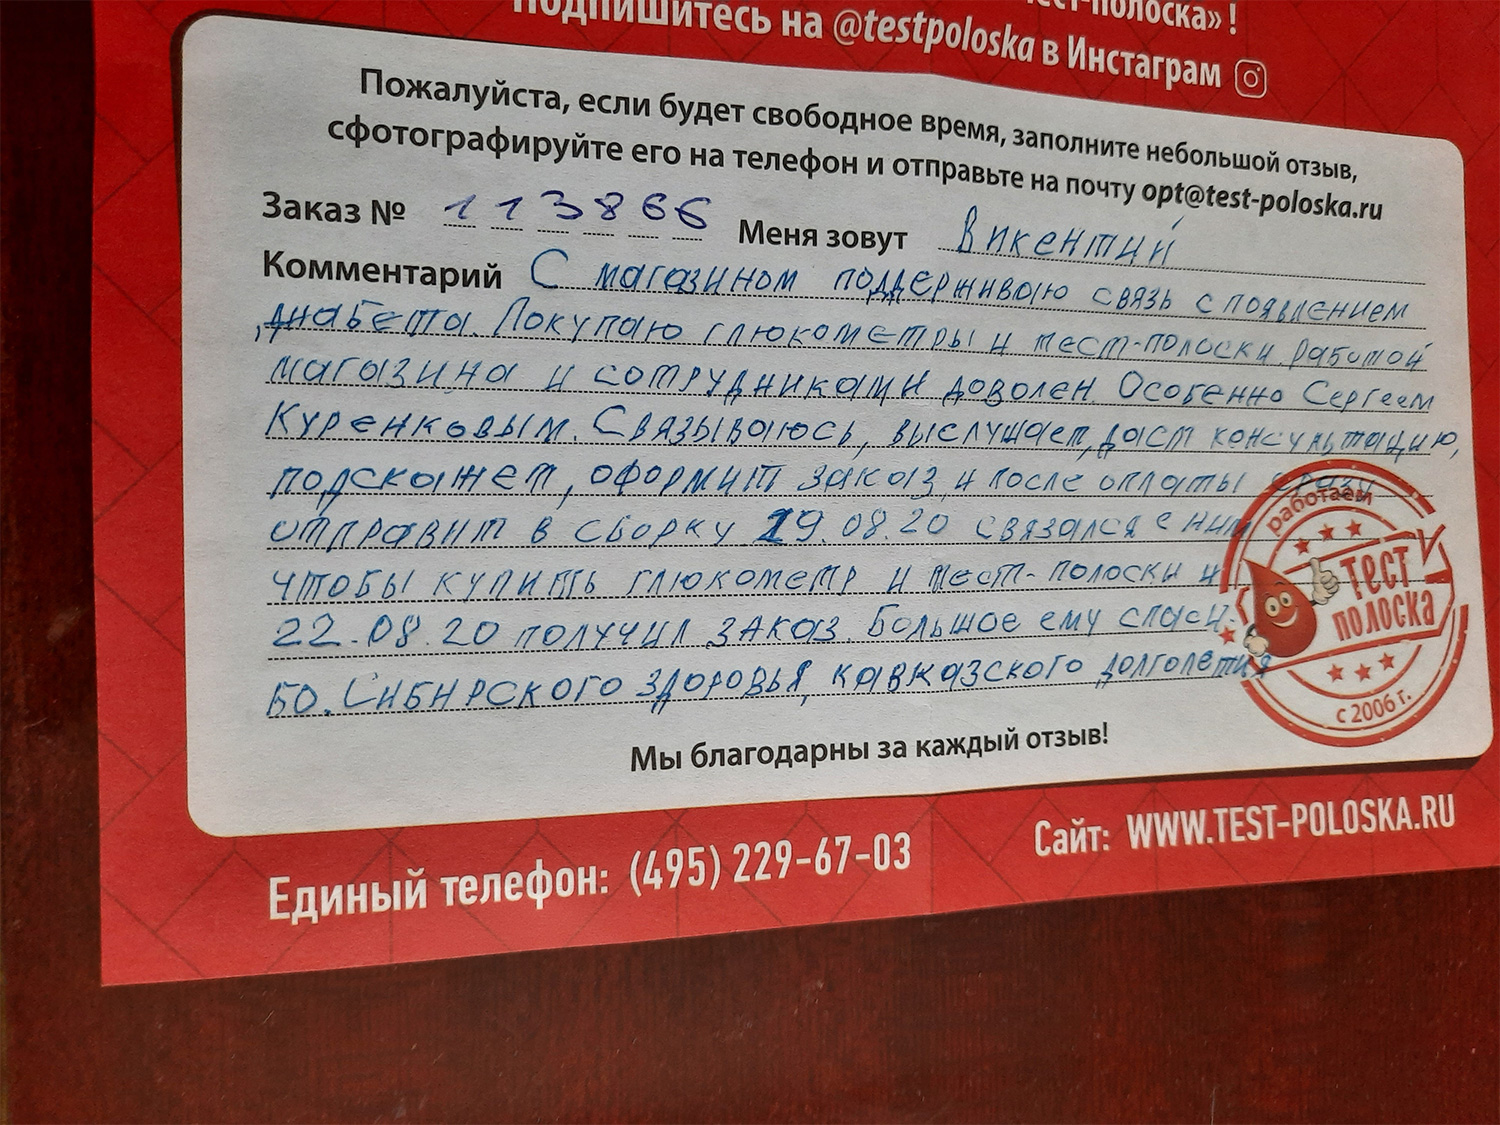 ст-полоска» !
Подпишитесь на @testpoloska в Инстаграм
Пожалуйста, если будет свободное время, заполните небольшой отзыв,
сфотографируйте его на телефон и отправьте на почту opt@test-poloska.ru
Заказ № 113866 Меня зовут Викентий
Комментарий С магазином поддерживаю связь с появлением
диабета. Покупаю глюкометры и тест-полоски. Работой
магазина и сотрудниками доволен. Особенно Сергеем
Куренковым. Связываюсь, выслушает, даст консультацию,
подскажет, оформит заказ, и после оплаты сразу
отправит в сборку 19.08.20 связался с ним
чтобы купить глюкометр и тест-полоски и
22.08.20 получил заказ. Большое ему спаси-
бо. Сибирского здоровья, кавказского долголетия
работаем
тест
полоска
с 2006 г.
Мы благодарны за каждый отзыв!
Единый телефон: (495) 229-67-03 Сайт: WWW.TEST-POLOSKA.RU